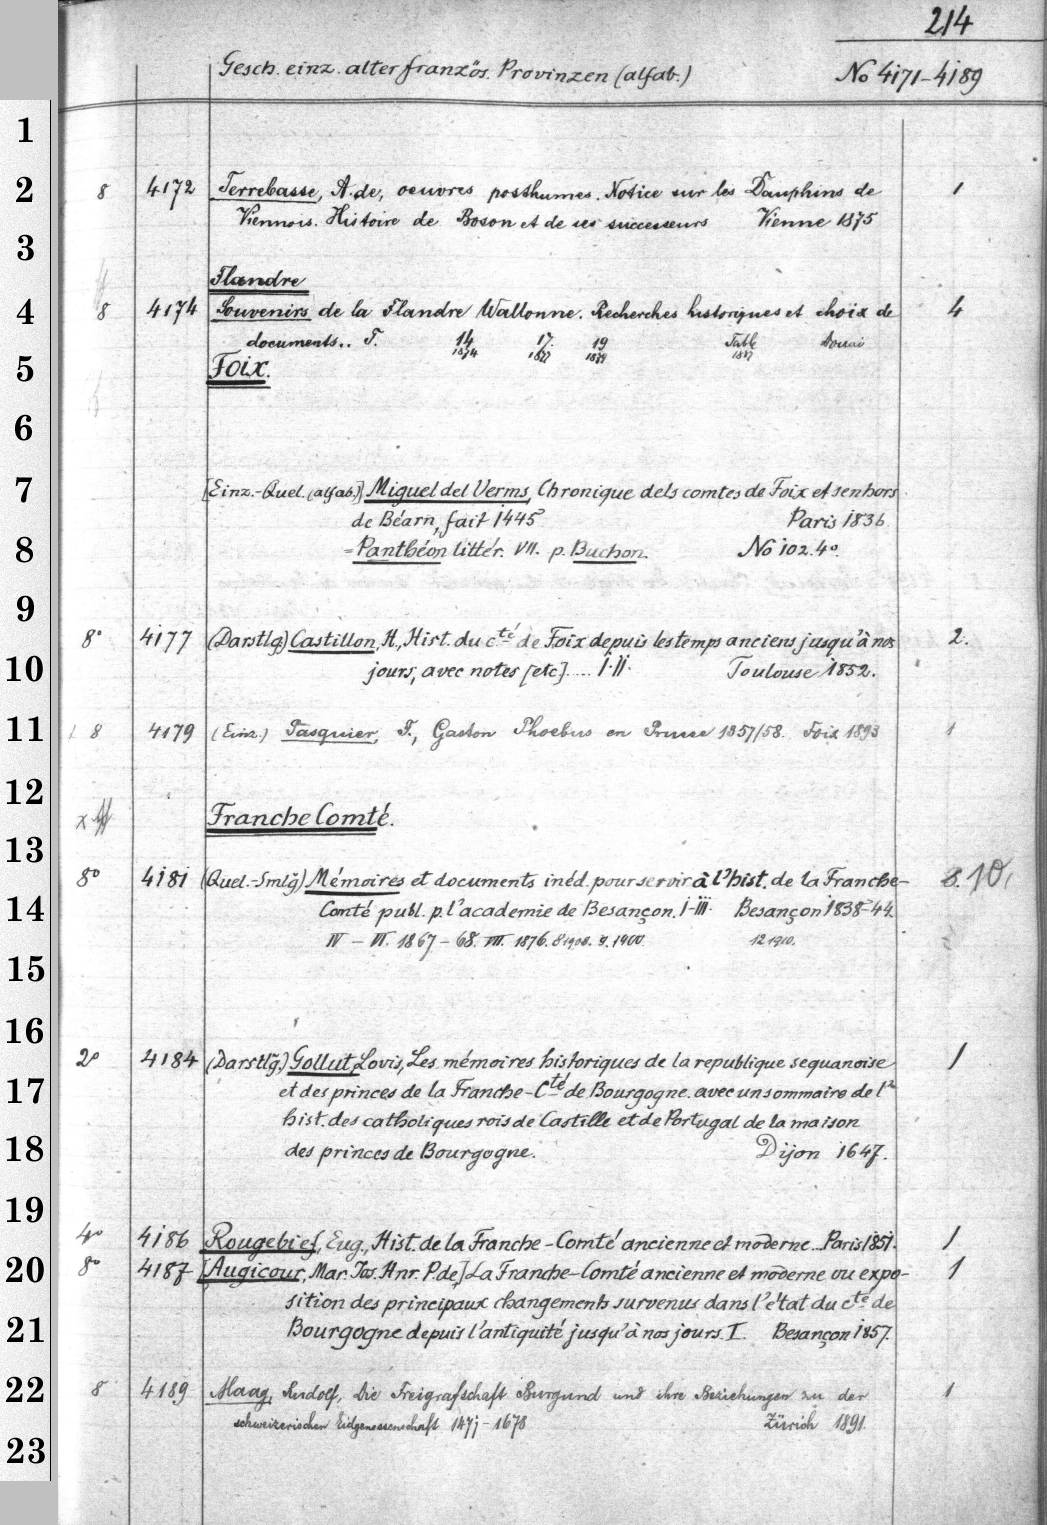 214
Gesch. einz. alter französ. Provinzen (alfab.) No 4171-4189
1
2 8 4172 Terrebasse, A. de, oeuvres posthumes. Notice sur les Dauphins de 1
Viennois. Histoire de Boson et de ses successeurs Vienne 1875
3
Flandre
4 8 4174 Souvenirs de la Flandre Wallonne. Recherches historiques et choix de 4
documents.. T. 14 17. 19 Tabl Douai
1874 1877 1879 1887
5 Foix.
6
7 [Einz.-Quel. (alfab.)] Miguel del Verms, Chronique dels comtes de Foix et senhors
de Béarn, fait 1445 Paris 1836
8 =Panthéon littér. VII. p. Buchon. No 102. 4°.
9
8° 4177 (Darstlg) Castillon, H., Hist. du cté de Foix depuis les temps anciens jusqu'à nos 2.
10 jours, avec notes [etc]..... I.II. Toulouse 1852.
11 8 4179 (Einz.) Pasquier, F., Gaston Phoebus en Prusse 1357/58. Foix 1893 1
12
x Franche Comté.
13
8° 4181 (Quel.-Smlg) Mémoires et documents inéd. pour servir à l'hist. de la Franche- 8. 10,
14 Comté publ. p. l'academie de Besançon. I-III. Besançon 1838-44.
IV - VI. 1867-68. VII. 1876. 8 1908. 9. 1900. 12 1910.
15
16
2° 4184 (Darstlg) Gollut, Lovis, Les mémoires historiques de la republique sequanoise 1
17 et des princes de la Franche-Cté de Bourgogne. avec un sommaire de l'
hist. des catholiques rois de Castille et de Portugal de la maison
18 des princes de Bourgogne. Dijon 1647.
19
4° 4186 Rougebief, Eug., Hist. de la Franche-Comté ancienne et moderne.. Paris 1851. 1
20 8° 4187 [Augicour, Mar. Jos. Hnr. P. de,] La Franche-Comté ancienne et moderne ou expo- 1
sition des principaux changements survenus dans l'état du cté de
21 Bourgogne depuis l'antiquité jusqu'à nos jours. I. Besançon 1857.
22 8 4189 Maag, Rudolf, Die Freigrafschaft Burgund und ihre Beziehungen zu der 1
schweizerischen Eidgenossenschaft 1477-1678 Zürich 1891.
23